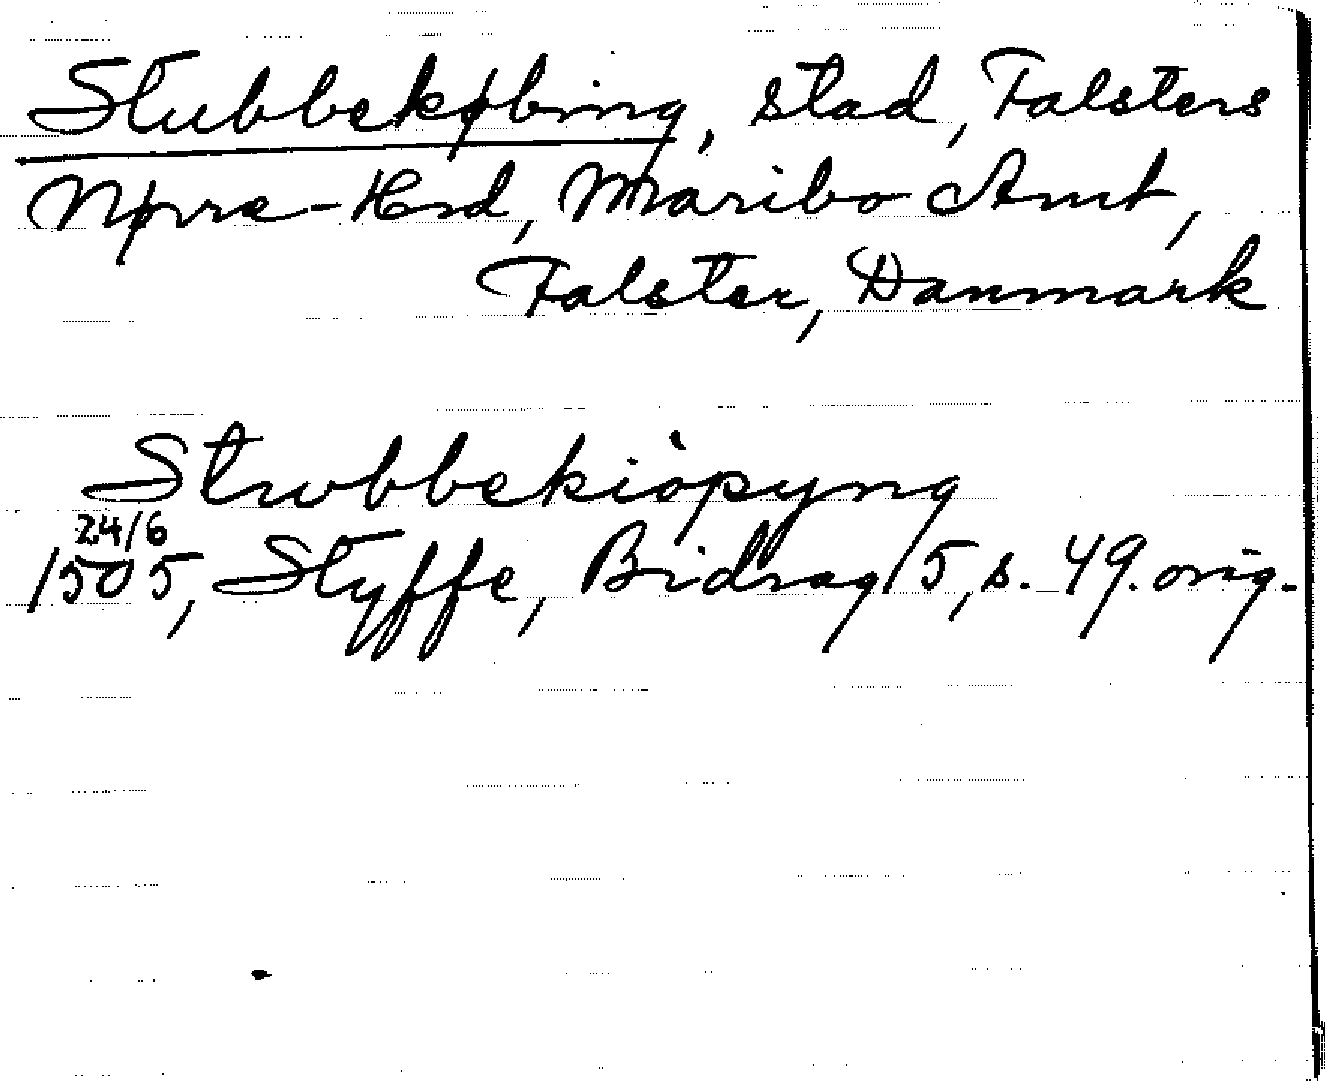 Stubbekøbing, stad, Falsters
Nørre-Hrd, Maribo Amt,
Falster, Danmark
Strvbbekiòpyng
24/6
1505, Styffe, Bidrag 5, s. 49. orig.